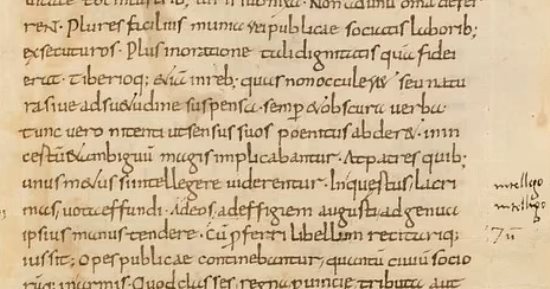 civitate tot inlustrib; uir is subnixa. Non adunū omĩa defer
reN. Plures facilius munia reipublicae sociatis laborib;
exsecuturos. Plus inoratione tali dignitatis quā fidei
erat. Tiberioq; &iā inreb; quas non occuler& seu natu
ra siue adsu&udine suspensa. semp & obscura uerba.
tunc uero nitenti ut sensus suos poenitus abder&. inin
certū &ambiguū magis implicabantur. At patres quib;
unus m&us siintellegere uiderentur. Inquestus lacri
mas, uota effundi. Adeos, adeffigiem augusti, adgenua
ipsius manus tendere. Cū pferri libellum recitariq;
iussit; Opes publicae continebantur, quantū ciuiū socio
rūq; inarmis. Quod classes. regna puincie tributa aut
intellego
intelligo